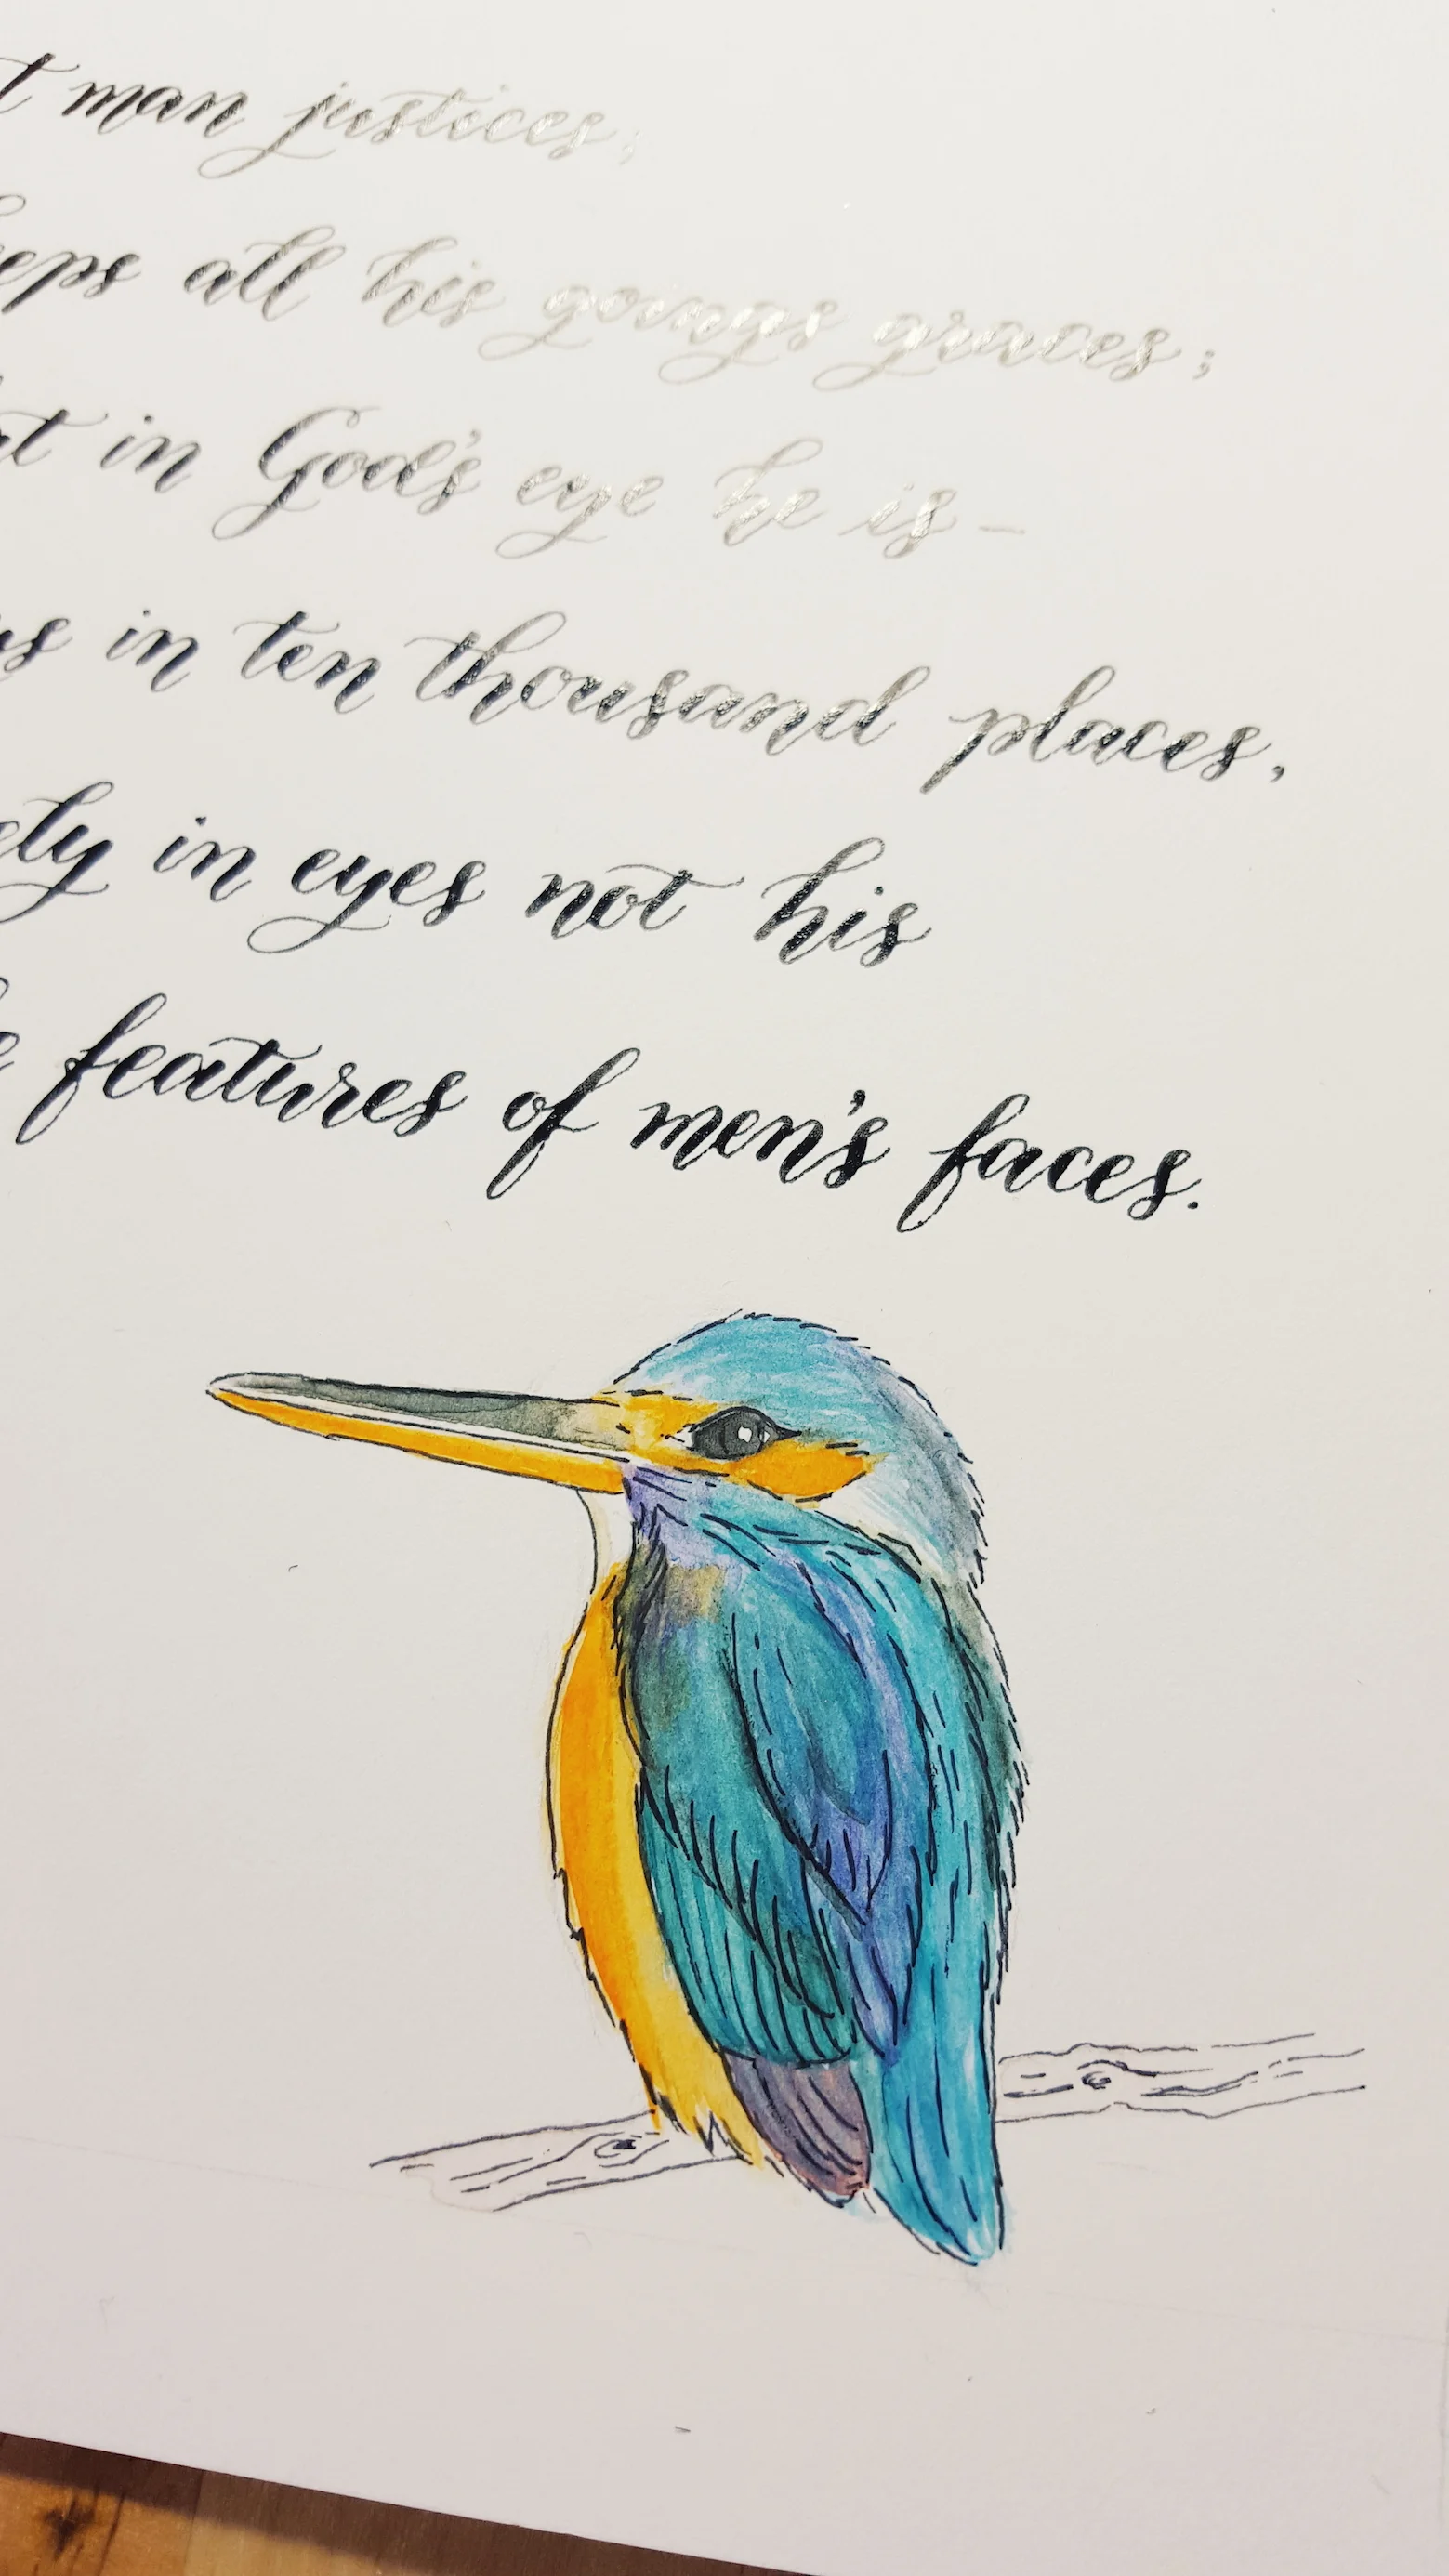 t man justices;
eeps all his goings graces;
at in God's eye he is –
ys in ten thousand places,
ely in eyes not his
e features of men's faces.